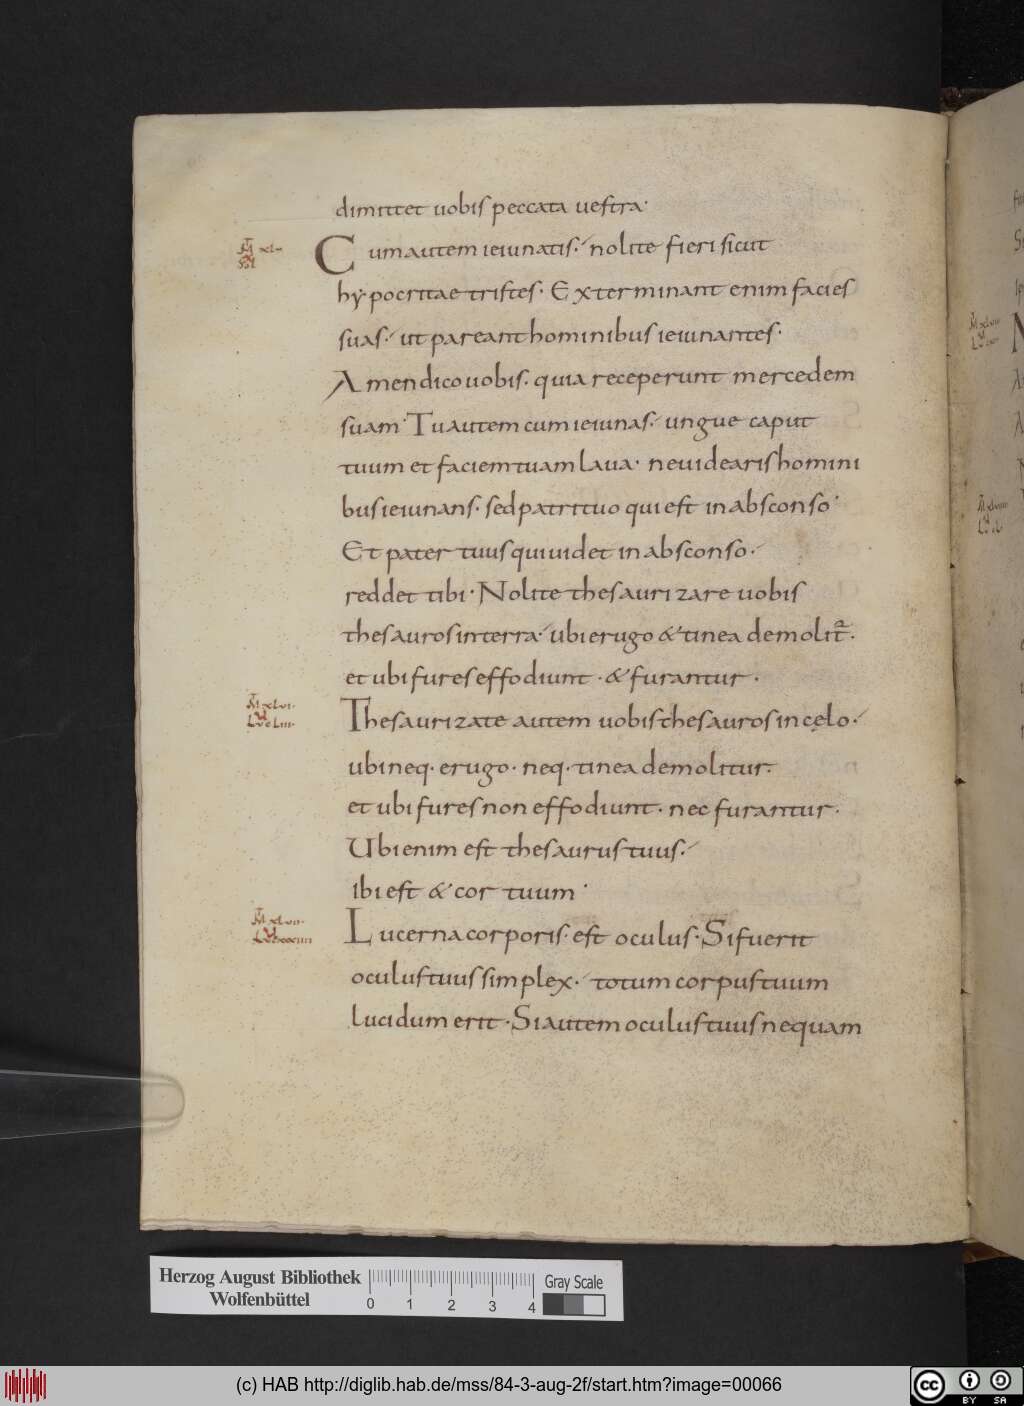 dimittet uobis peccata uestra·
Cum autem ieiunatis· nolite fieri sicut
hypocritae tristes· Exterminant enim facies
suas· ut pareant hominibus ieiunantes·
Amen dico uobis· quia receperunt mercedem
suam· Tu autem cum ieiunas· ungue caput
tuum et faciem tuam laua· ne uidearis homini
bus ieiunans· sed patri tuo qui est in absconso·
Et pater tuus qui uidet in absconso·
reddet tibi· Nolite thesaurizare uobis
thesauros in terra· ubi erugo & tinea demolit᷑·
et ubi fures effodiunt· & furantur·
Thesaurizate autem uobis thesauros in cęlo·
ubi neq· erugo· neq· tinea demolitur·
et ubi fures non effodiunt· nec furantur·
Ubi enim est thesaurus tuus·
ibi est & cor tuum·
Lucerna corporis· est oculus· Si fuerit
oculus tuus simplex· totum corpus tuum
lucidum erit· Si autem oculus tuus nequam
Herzog August Bibliothek
Wolfenbüttel
0 1 2 3 4
Gray Scale
(c) HAB http://diglib.hab.de/mss/84-3-aug-2f/start.htm?image=00066
cc BY SA